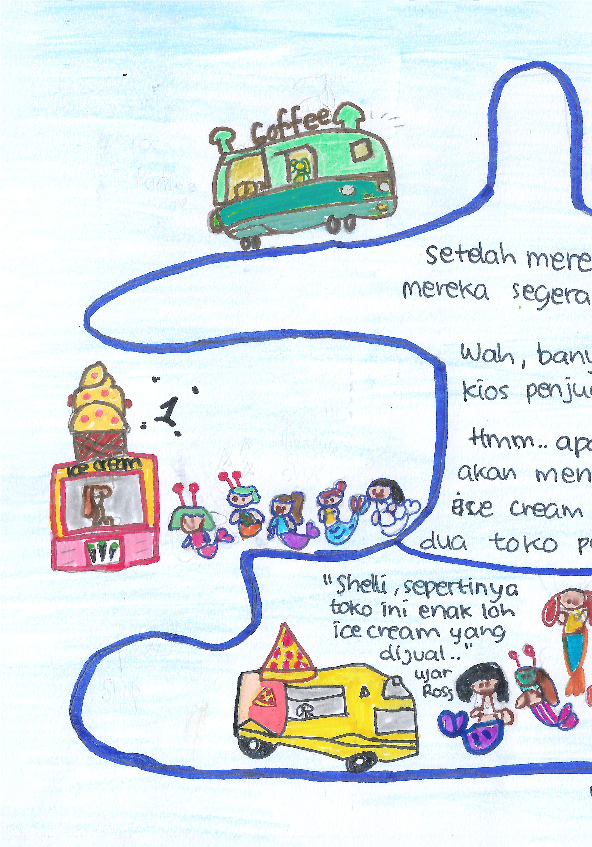 Coffee
setelah mere
mereka segera
Wah, bany
kios penju
1
ice cream
Hmm.. apa
akan men
ice cream
dua toko p
"Shelli, sepertinya
toko ini enak loh
ice cream yang
dijual.."
ujar
Ross
R